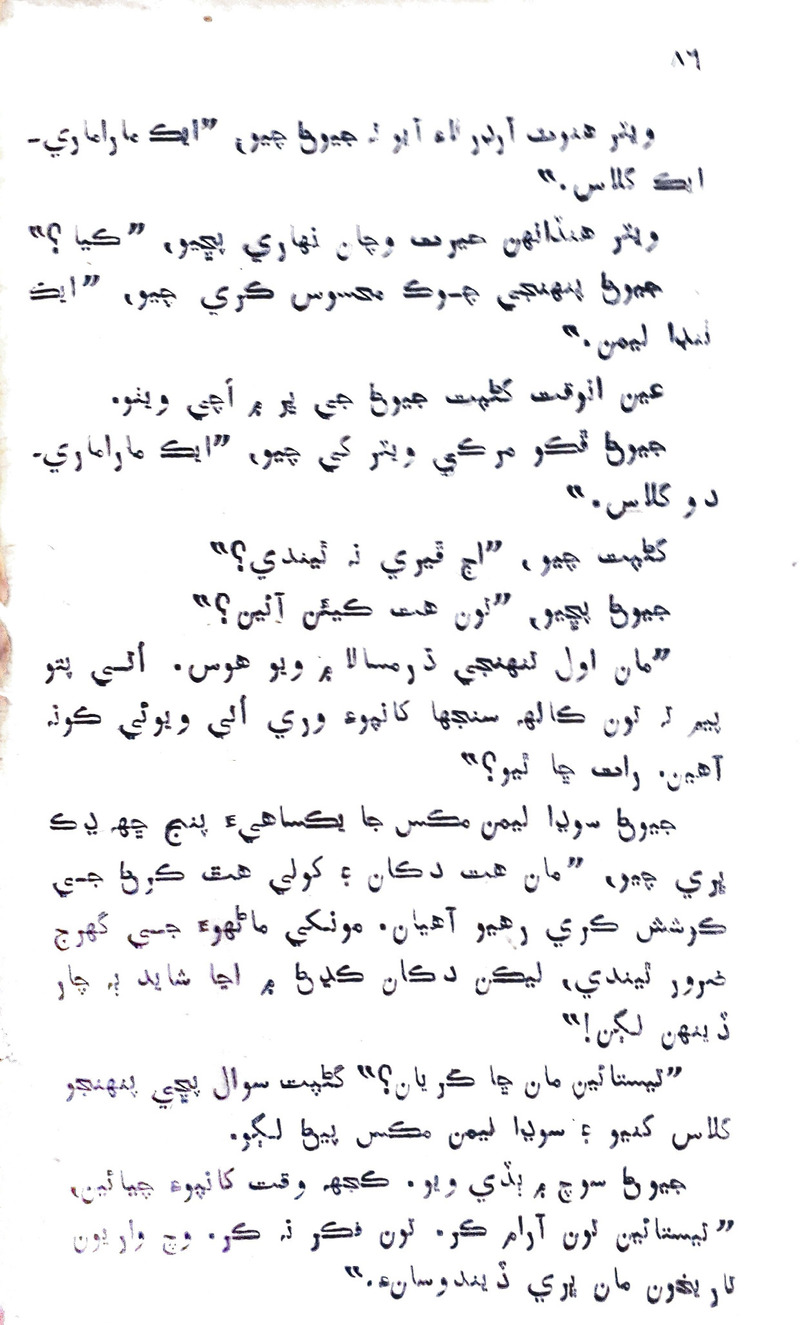 ٨٦
ويٽر هنوٽ آرڊر لاءِ آيو تہ جيوڻ چيو، ”ايڪ ماراماري-
ايڪ گلاس.“
ويٽر هنڏانهن حيرت وچان نهاري پڇيو، ”ڪيا؟“
جيوڻ پنهنجي چـوڪ محسوس ڪري چيو، ”ايڪ
ٺنڊا ليمن.“
عين انوقت گڻپت جيوڻ جي ڀر ۾ اچي ويٺو.
جيوڻ ڦڪو مرڪي ويٽر کي چيو، ”ايڪ ماراماري-
دو گلاس.“
گڻپت چيو، ”اڄ ڦيري نہ ٿيندي؟“
جيوڻ پڇيو، ”تون هت ڪيئن آئين؟“
”مان اول تنهنجي ڌرمسالا ۾ ويو هوس. اتـي پتو
پيم تہ تون ڪالهہ سنجها کانپوءِ وري اتي ويوئي ڪونہ
آهين. رات ڇا ٿيو؟“
جيوڻ سوڊا ليمن مڪس جا يڪساهيءَ پنج ڇهہ ڍڪ
ڀري چيو، ”مان هت دڪان ۽ کولي هٿ ڪرڻ جـي
ڪوشش ڪري رهيو آهيان. مونکي ماڻهوءَ جـي گهرج
ضرور ٿيندي، ليڪن دڪان ڪڍڻ ۾ اڃا شايد ٻہ چار
ڏينهن لڳن!“
”تيستائين مان ڇا ڪريان؟“ گڻپت سوال پڇي پنهنجو
گلاس کنيو ۽ سوڊا ليمن مڪس پيڻ لڳو.
جيوڻ سوچ ۾ ٻڏي ويو. ڪجهہ وقت کانپوءِ چيائين،
”تيستائين تون آرام ڪر. تون فڪر نہ ڪر. وچ واريون
تاريخون مان ڀري ڏيندوسانءِ.“